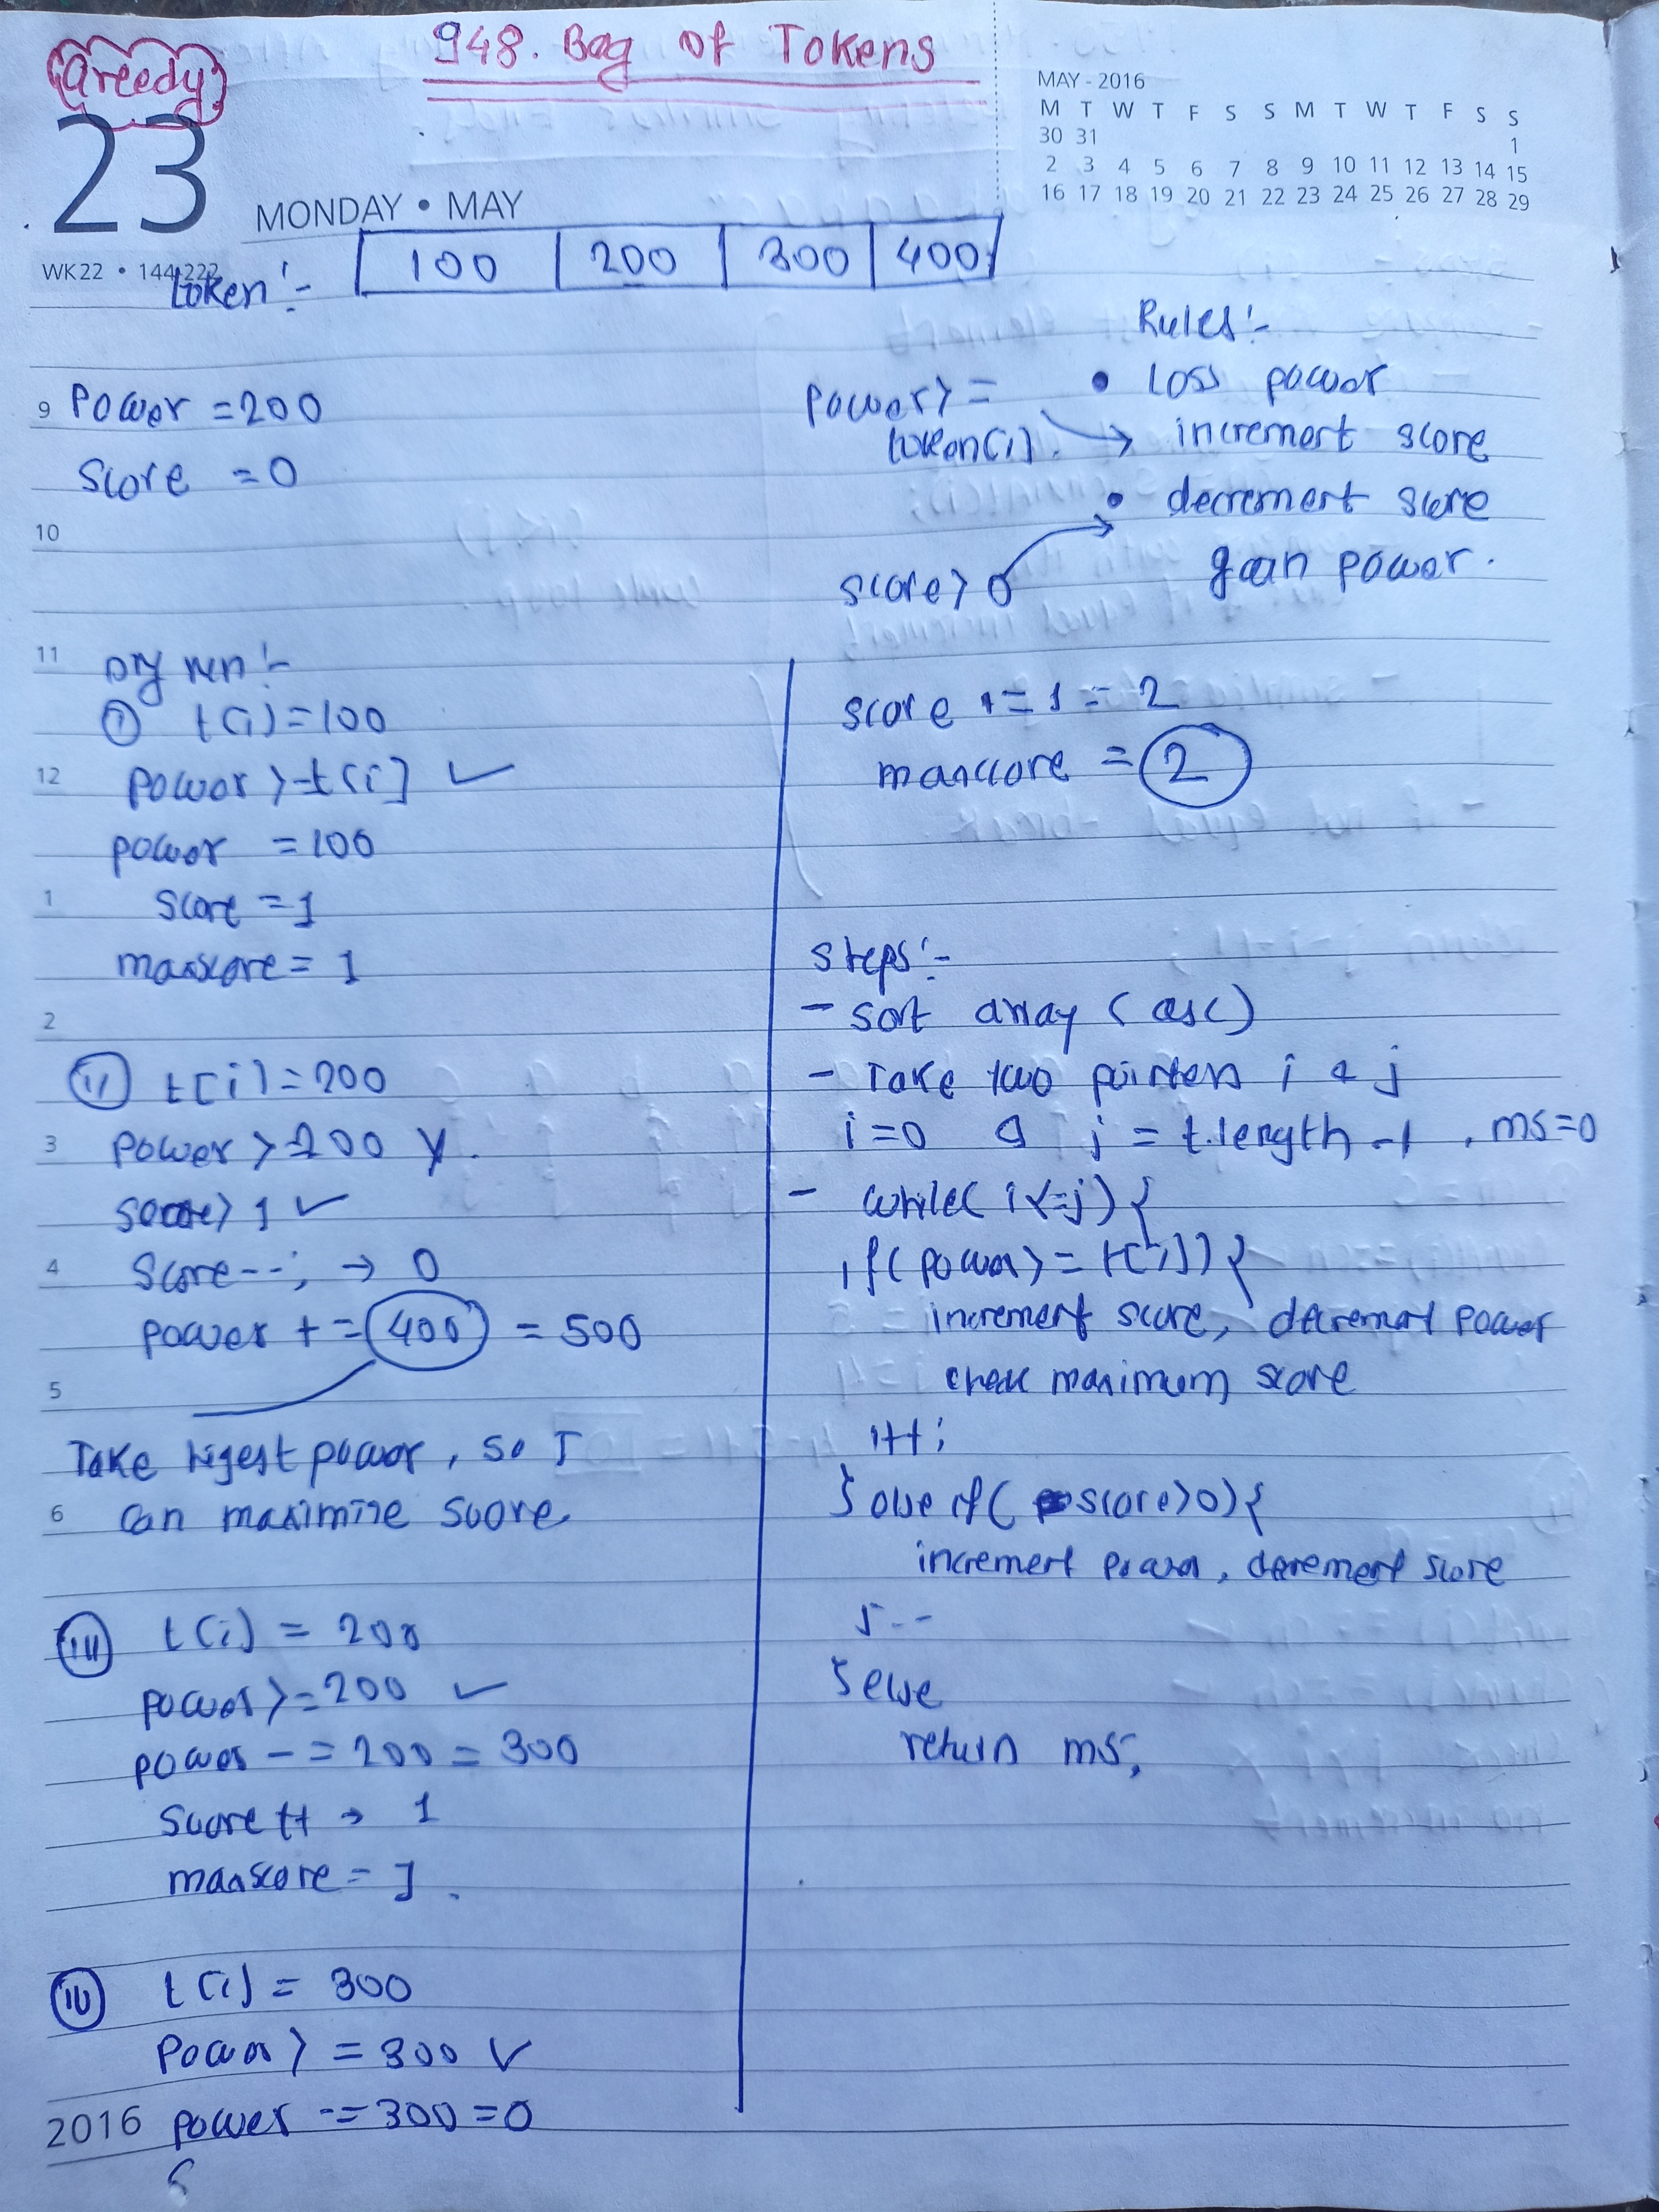 Greedy
948. Bag of Tokens
23
MONDAY • MAY
WK22 • 144-222
MAY - 2016
M T W T F S S M T W T F S S
30 31 1
2 3 4 5 6 7 8 9 10 11 12 13 14 15
16 17 18 19 20 21 22 23 24 25 26 27 28 29
token:- 100 200 300 400
9 Power = 200
Score = 0
10
Rules:-
power >= token(i).
• loss power
increment score
• decrement score
gain power.
score > 0
11 Dry run:-
① t(i) = 100
12 power > t[i] ✓
power = 100
1 score = 1
maxscore = 1
2
II t[i] = 200
3 power > 200 X.
score > 1 ✓
4 Score--; → 0
power += 400 = 500
5
Take higest power, so I
6 can maximize score
III t(i) = 200
power >= 200 ✓
power -= 200 = 300
score ++ → 1
maxscore = 1.
IV t(i) = 300
Power >= 300 ✓
2016 power -= 300 = 0
score += 1 = 2
maxscore = 2
Steps:-
- sort array (asc)
- Take two pointers i & j
i=0 & j = t.length-1, ms=0
- while(i<=j){
if(power >= t[i]){
increment score, decrement power
check maximum score
i++;
} else if(score>0){
increment power, decrement score
J--
} else
return ms;